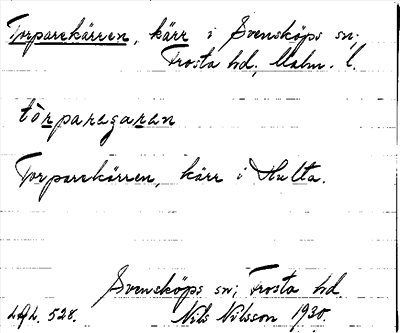 Torparekärren, kärr i Svensköps sn;
Frosta hd, Malm. l.
tòrparegaren
Torparekärren, kärr i Hulta.
Svensköps sn; Frosta hd.
528. Nils Nilsson 1930.